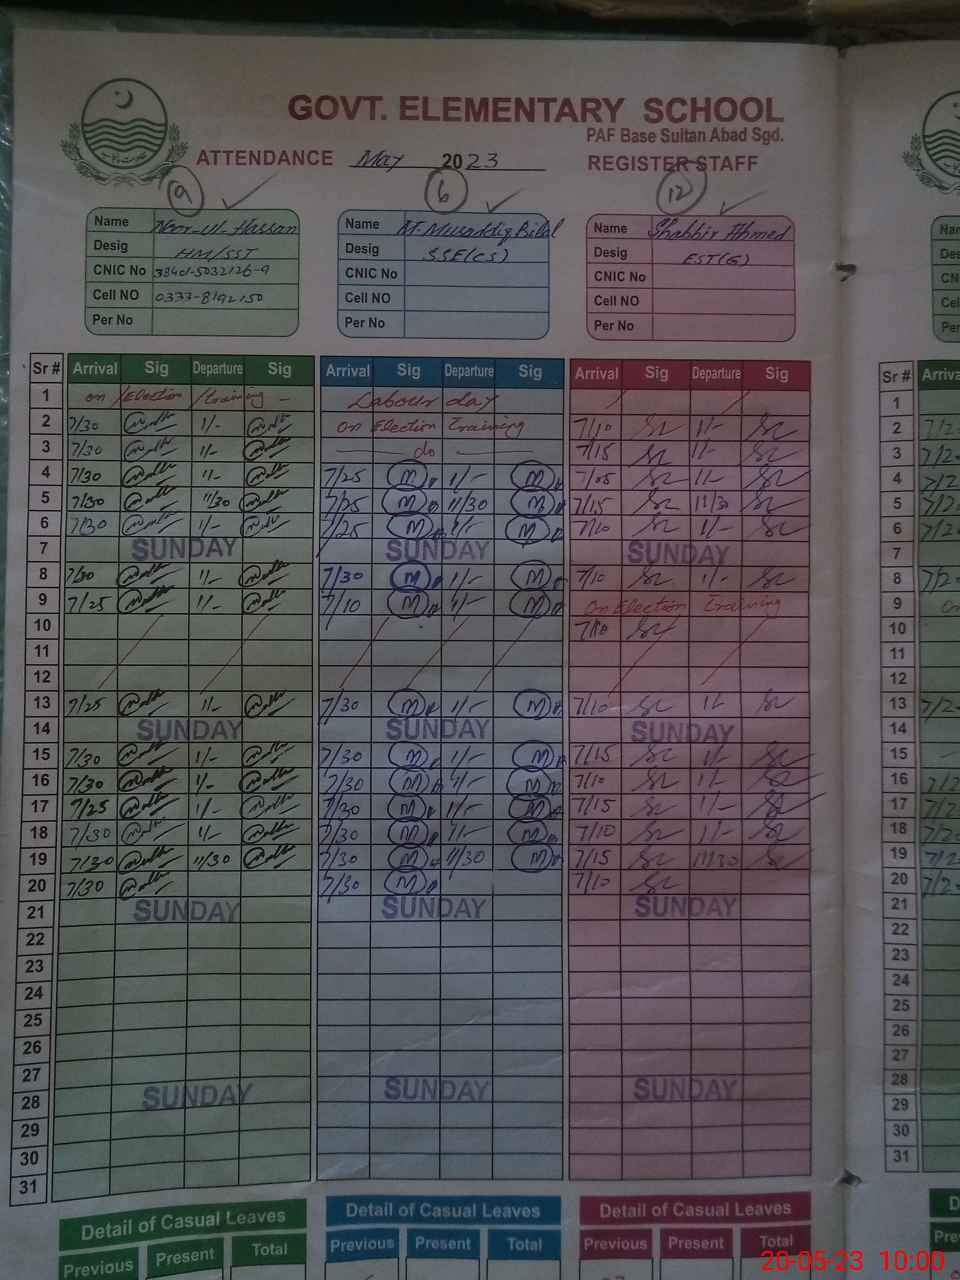 GOVT. ELEMENTARY SCHOOL
PAF Base Sultan Abad Sgd.
ATTENDANCE May 2023 REGISTER STAFF
9 6 12
Name Noor-ul-Hassan Name M. Musaddiq Bilal Name Shabbir Ahmed
Desig HM/SST Desig SSE(CS) Desig EST(G)
CNIC No 38401-5032126-9 CNIC No CNIC No
Cell NO 0333-8192150 Cell NO Cell NO
Per No Per No Per No
Sr # Arrival Sig Departure Sig Arrival Sig Departure Sig Arrival Sig Departure Sig Sr #
1 on Election training Labour day 1
2 7/30 1/- on Election Training 7/10 1/- 2
3 7/30 1/- do 7/15 1/- 3
4 7/30 1/- 7/25 M 1/- M 7/05 1/- 4
5 7/30 11/30 7/25 M 11/30 M 7/15 11/30 5
6 7/30 1/- 7/25 M 1/- M 7/10 1/- 6
7 SUNDAY SUNDAY SUNDAY 7
8 7/30 1/- 7/30 M 1/- M 7/10 1/- 8
9 7/25 1/- 7/10 M 1/- M On Election Training 9
10 7/10 10
11 11
12 12
13 7/25 1/- 7/30 M 1/- M 7/10 1/- 13
14 SUNDAY SUNDAY SUNDAY 14
15 7/30 1/- 7/30 M 1/- M 7/15 1/- 15
16 7/30 1/- 7/30 M 1/- M 7/10 1/- 16
17 7/25 1/- 7/30 M 1/- M 7/15 1/- 17
18 7/30 1/- 7/30 M 1/- M 7/10 1/- 18
19 7/30 11/30 7/30 M 11/30 M 7/15 11/30 19
20 7/30 7/30 M 7/10 20
21 SUNDAY SUNDAY SUNDAY 21
22 22
23 23
24 24
25 25
26 26
27 27
28 SUNDAY SUNDAY SUNDAY 28
29 29
30 30
31 31
Detail of Casual Leaves Detail of Casual Leaves Detail of Casual Leaves
Previous Present Total Previous Present Total Previous Present Total
20-05-23 10:00